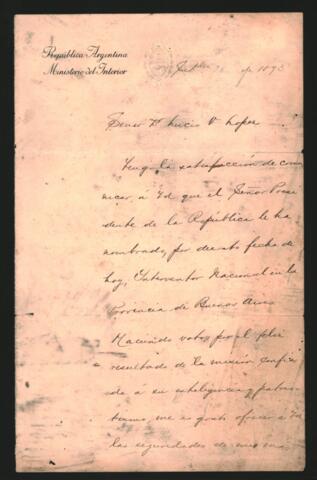 República Argentina
Ministerio del Interior
de 1893
Señor Dr Lucio V Lopez
Tengo la satisfacción de comu
nicar, a Ud que el Señor Presi
dente de la República le ha
nombrado, por decreto fecha de
hoy, Interventor Nacional en la
Provincia de Buenos Aires
Haciendo votos por el feliz
resultado de la mision confia
da á su inteligencia y patrio
tismo, me es grato ofrecer á Ud
las seguridades de mi